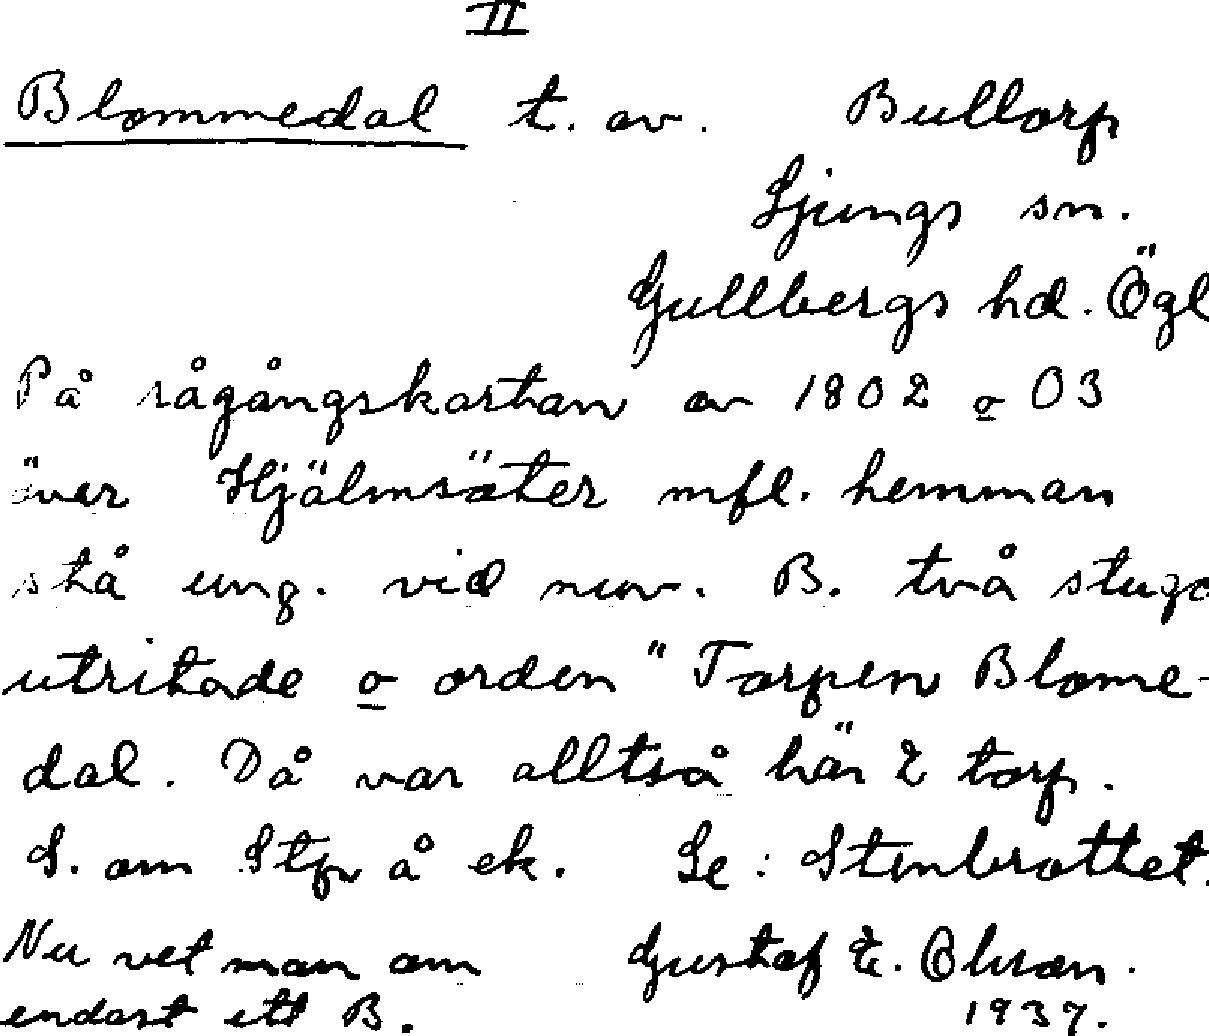 II
Blommedal t. av. Bullorp
Ljungs sn.
Gullbergs hd. Ögl
På rågångskartan av 1802 o 03
över Hjälmsäter mfl. hemman
stå ung. vid nuv. B. två stugo
utritade o orden "Torpen Blome-
dal. Då var alltså här 2 torp.
S. om Stfp å ek. Se: Stenbrottet.
Nu vet man om
endast ett B.
Gustaf E. Olsson.
1937.